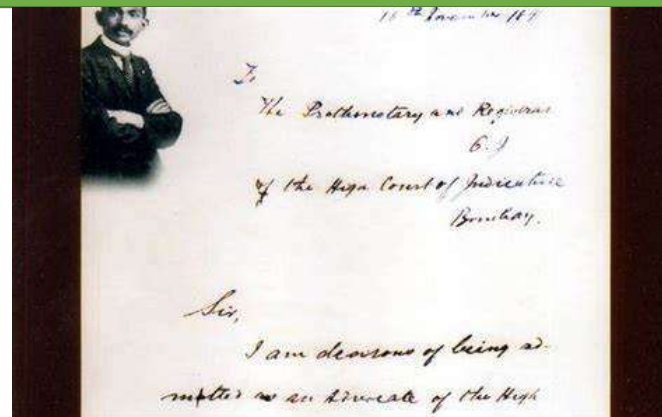 16th November 189
To
The Prothonotary and Registrar
of the High Court of Judicature
Bombay.
Sir,
I am desirous of being ad-
mitted as an Advocate of the High